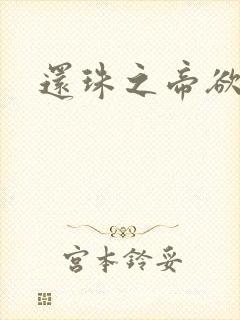 還珠之帝欲
宮本鈴妥